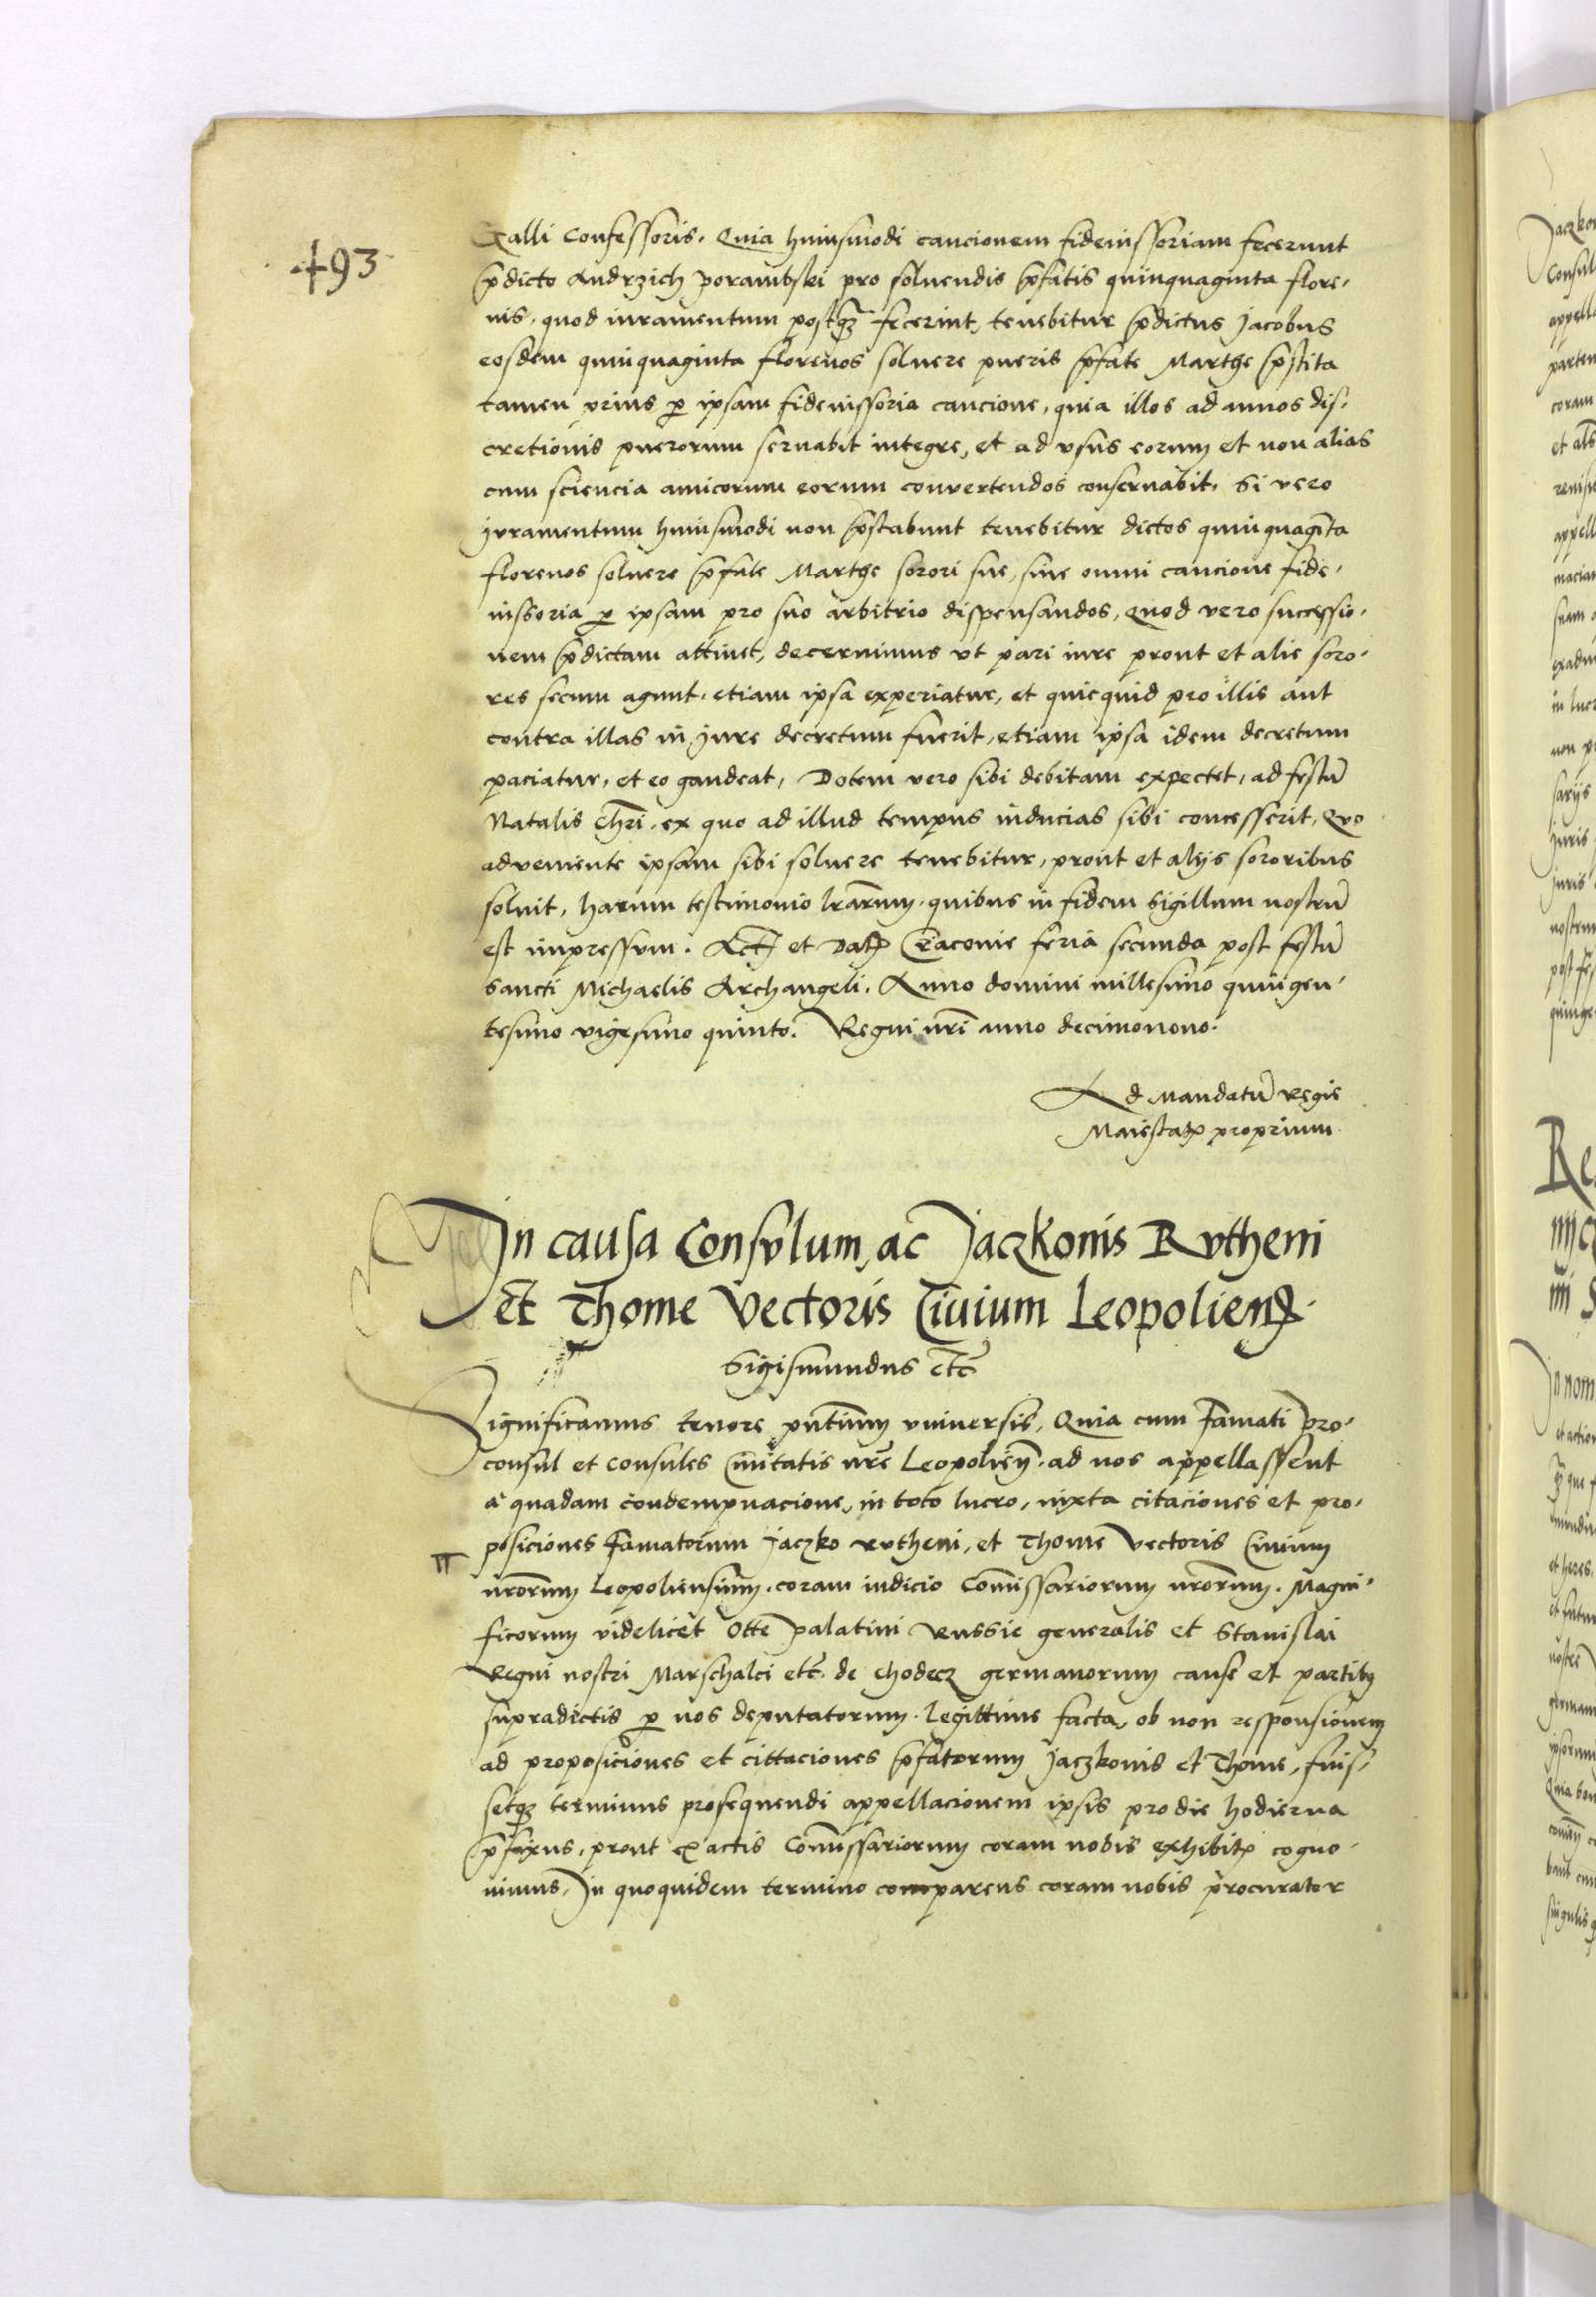 493
Galli Confessoris. Quia huiusmodi caucionem fideiussoriam fecerunt
p̄dicto Andrzich Porambski pro soluendis p̄fatis quinquaginta flore-
nis, quod iuramentum postq̄ȝ fecerint, tenebitur p̄dictus Jacobus
eosdem quinquaginta florenos soluere pueris p̄fate Marthe p̄stita
tamen prius ꝑ ipsam fideiussoria caucione, quia illos ad annos dis-
cretionis puerorum seruabit integre, et ad vsus eorum et non alias
cum sciencia amicorum eorum convertendos conseruabit. Si vero
Juramentum huiusmodi non p̄stabunt tenebitur dictos quinquagīta
florenos soluere p̄fate Marthe sorori sue, sine omni caucione fide-
iussoria ꝑ ipsam pro suo arbitrio dispensandos, Quod vero successio-
nem p̄dictam attinet, decernimus vt pari iure prout et alie soro-
res secum agunt, etiam ipsa experiatur, et quicquid pro illis aut
contra illas in Jure decretum fuerit, etiam ipsa idem decretum
paciatur, et eo gaudeat, Dotem vero sibi debitam expectet, ad festū
Natalis Chrī, ex quo ad illud tempus inducias sibi concesserit, Quo
adveniente ipsam sibi soluere tenebitur, prout et alijs sororibus
soluit, harum testimonio lrārum, quibus in fidem Sigillum nostrū
est impressvm. Actꝭ et Datꝭ Cracouie feria secunda post festū
Sancti Michaelis Archangeli, Anno domini millesimo quingen-
tesimo vigesimo quinto. Regni nrī anno decimonono.
Ad Mandatū Regie
Maiestatꝭ proprium
In causa Consvlum, ac Jaczkonis Rvtheni
et Thome Vectoris Civium Leopolienꝭ.
Sigismundus etc̄
Significamus tenore pn̄tium vniversis, Quia cum Famati Pro-
consul et Consules Ciuitatis nrē Leopolien̄. ad nos appellassent
a quadam condempnacione, in toto lucro, iuxta citaciones et pro-
posiciones Famatorum Jaczko rvtheni, et Thome Vectoris Ciuium
nrōrum Leopoliensium, coram iudicio Com̄issariorum nrōrum. Magni-
ficorum videlicet Otte Palatini Russie generalis et Stanislai
Regni nostri Marschalci etc̄. de Chodecz germanorum cause et partibꝫ
supradictis ꝑ nos deputatorum. legittime facta, ob non responsionem
ad proposiciones et cittaciones p̄fatorum Jaczkonis et Thome, fuis-
setqȝ terminus prosequendi appellacionem ipsis pro die hodierna
p̄fixus, prout ex actis Com̄issariorum coram nobis exhibitꝭ cogno-
uimus, In quoquidem termino comparens coram nobis procurator